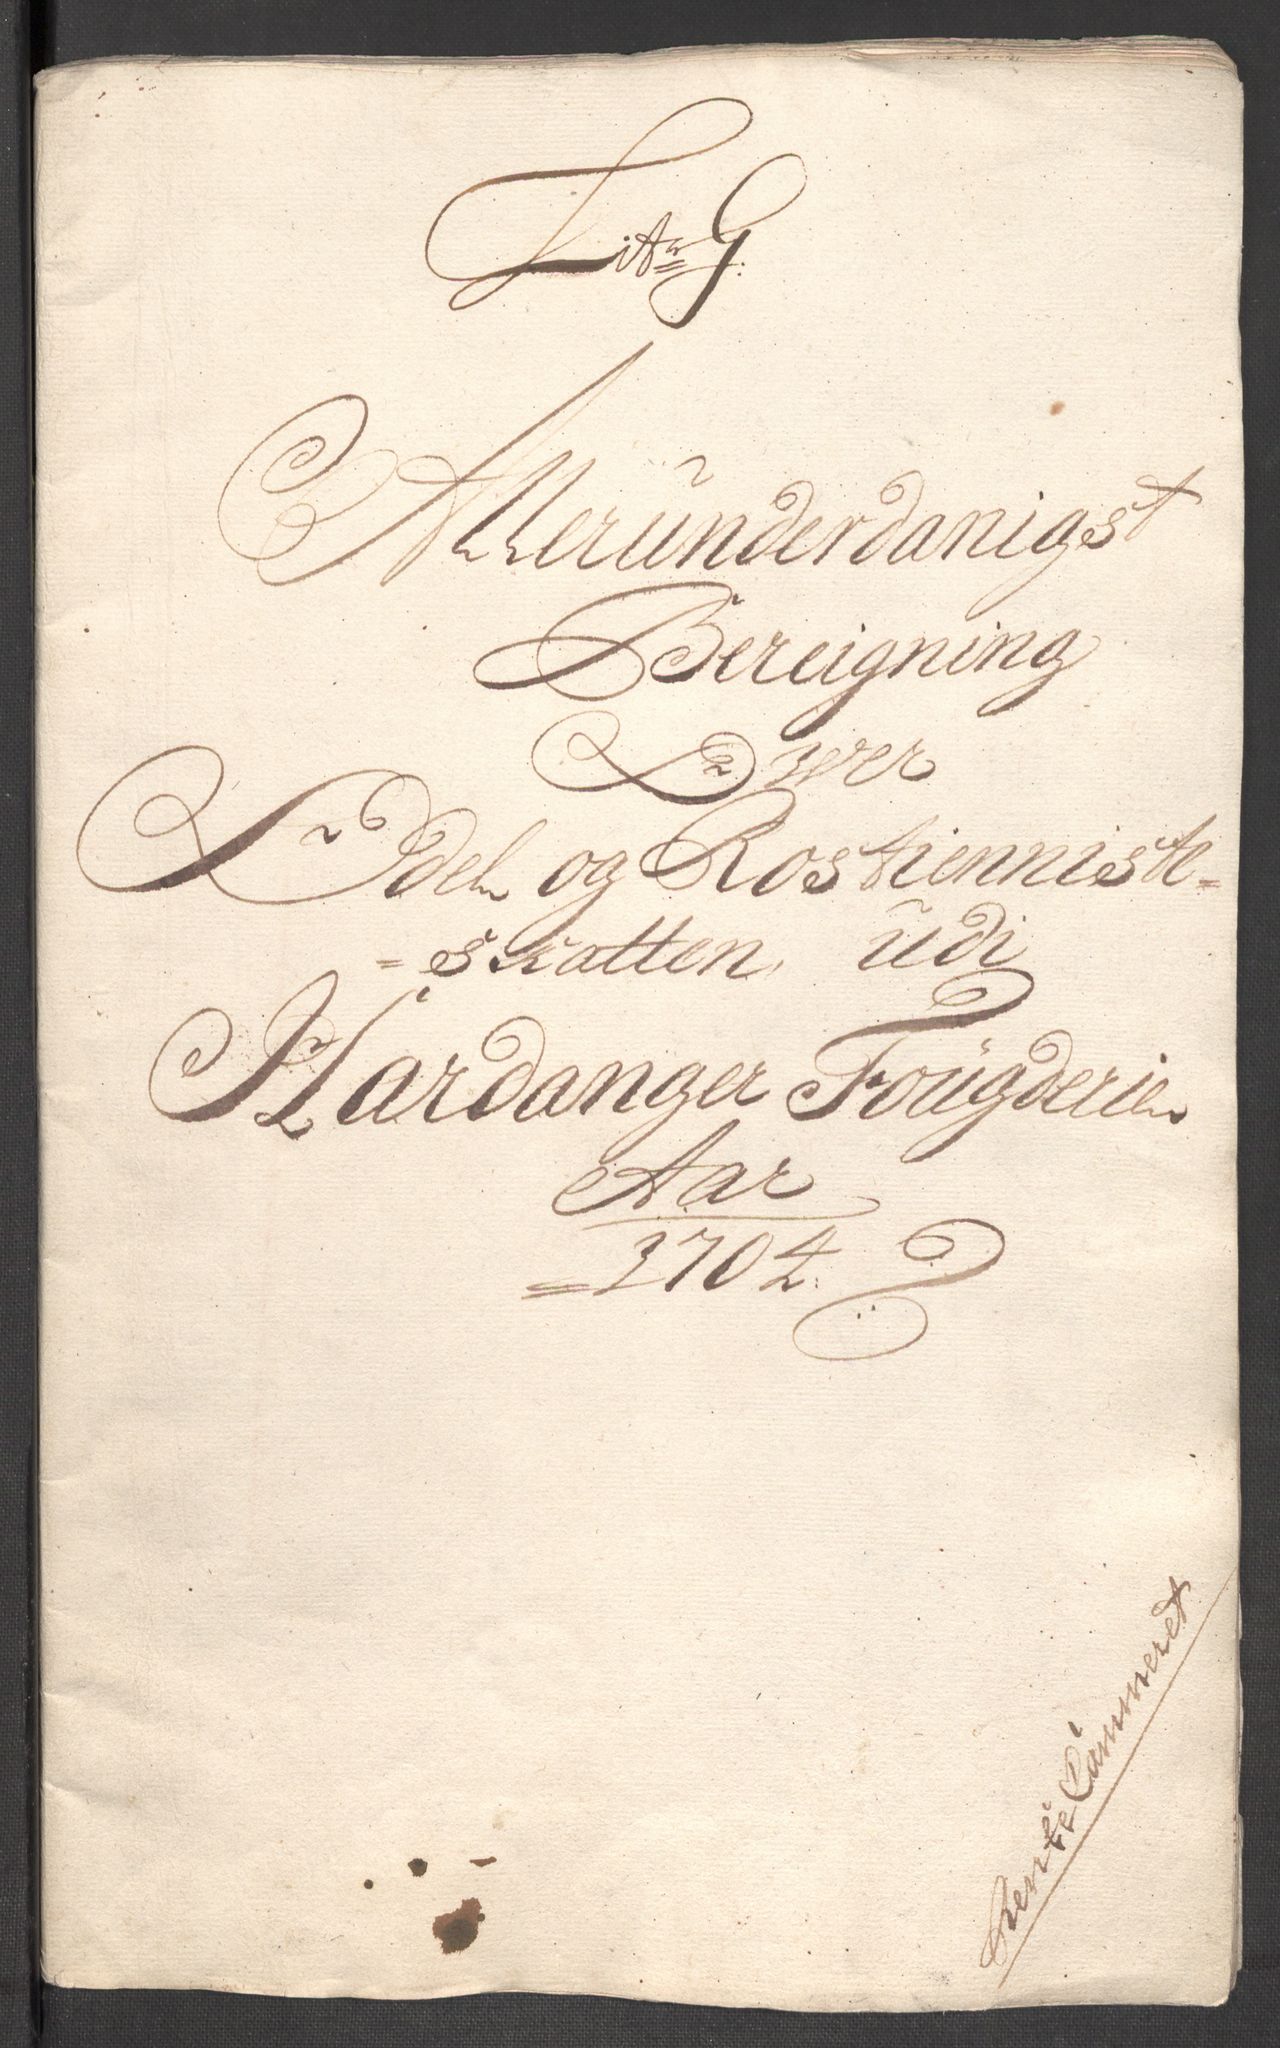 Lit: G.
Allerunderdanigst
Bereigning
Over
Odel og Rostiennist-
-skatten udi
Hardanger Fougderie
Aar
1704.
Rente Cammeret